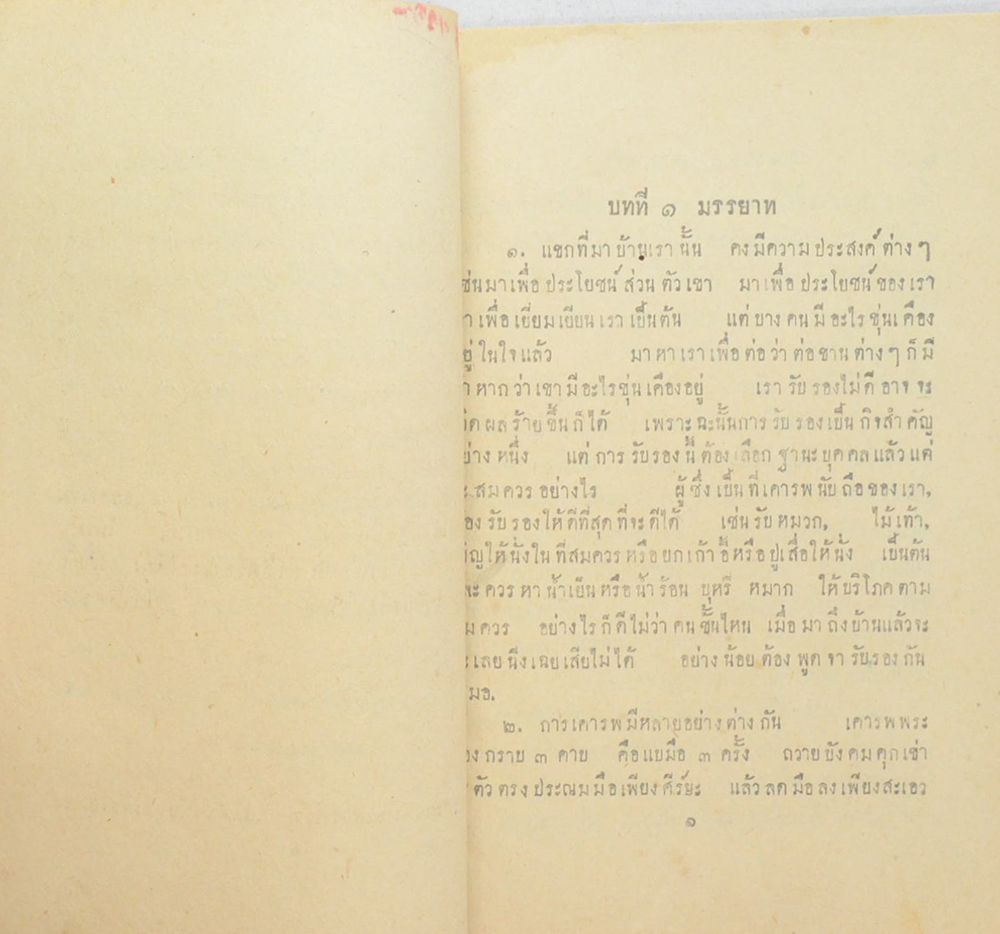 บทที่ ๑ มรรยาท
๑. แขกที่มาบ้านเรานั้น คงมีความประสงค์ต่างๆ
ช่นมาเพื่อประโยชน์ส่วนตัวเขา มาเพื่อประโยชน์ของเรา
าเพื่อเยี่ยมเยียนเราเป็นต้น แต่บางคนมีอะไรขุ่นเคือง
ยู่ในใจแล้ว มาหาเราเพื่อต่อว่าต่อขานต่างๆก็มี
าหากว่าเขามีอะไรขุ่นเคืองอยู่ เรารับรองไม่ดีอาจจะ
กิดผลร้ายขึ้นก็ได้ เพราะฉะนั้นการรับรองเป็นกิจสำคัญ
ย่างหนึ่ง แต่การรับรองนี้ต้องเลือกฐานะบุคคลแล้วแต่
ะสมควรอย่างไร ผู้ซึ่งเป็นที่เคารพนับถือของเรา,
องรับรองให้ดีที่สุดที่จะดีได้ เช่นรับหมวก, ไม้เท้า,
ชิญให้นั่งในที่สมควรหรือยกเก้าอี้หรือปูเสื่อให้นั่ง เป็นต้น
ละควรหาน้ำเย็นหรือน้ำร้อน บุหรี่ หมาก ให้บริโภคตาม
มควร อย่างไรก็ดีไม่ว่าคนชั้นไหน เมื่อมาถึงบ้านแล้วจะ
ะเลยนิ่งเฉยเสียไม่ได้ อย่างน้อยต้องพูดจารับรองกัน
มอ.
๒. การเคารพมีหลายอย่างต่างกัน เคารพพระ
องกราบ ๓ คาบ คือแบมือ ๓ ครั้ง ถวายบังคมคุกเข่า
ตัวตรงประณมมือเพียงศีร์ษะ แล้วลดมือลงเพียงสะเอว
๑